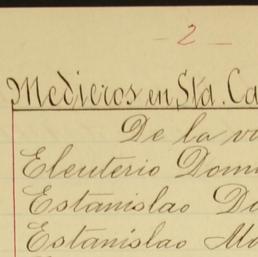 - 2 -
Medieros en Sta. Ca
De la vi
Eleuterio Domi
Estanislao Do
Estanislao Mo